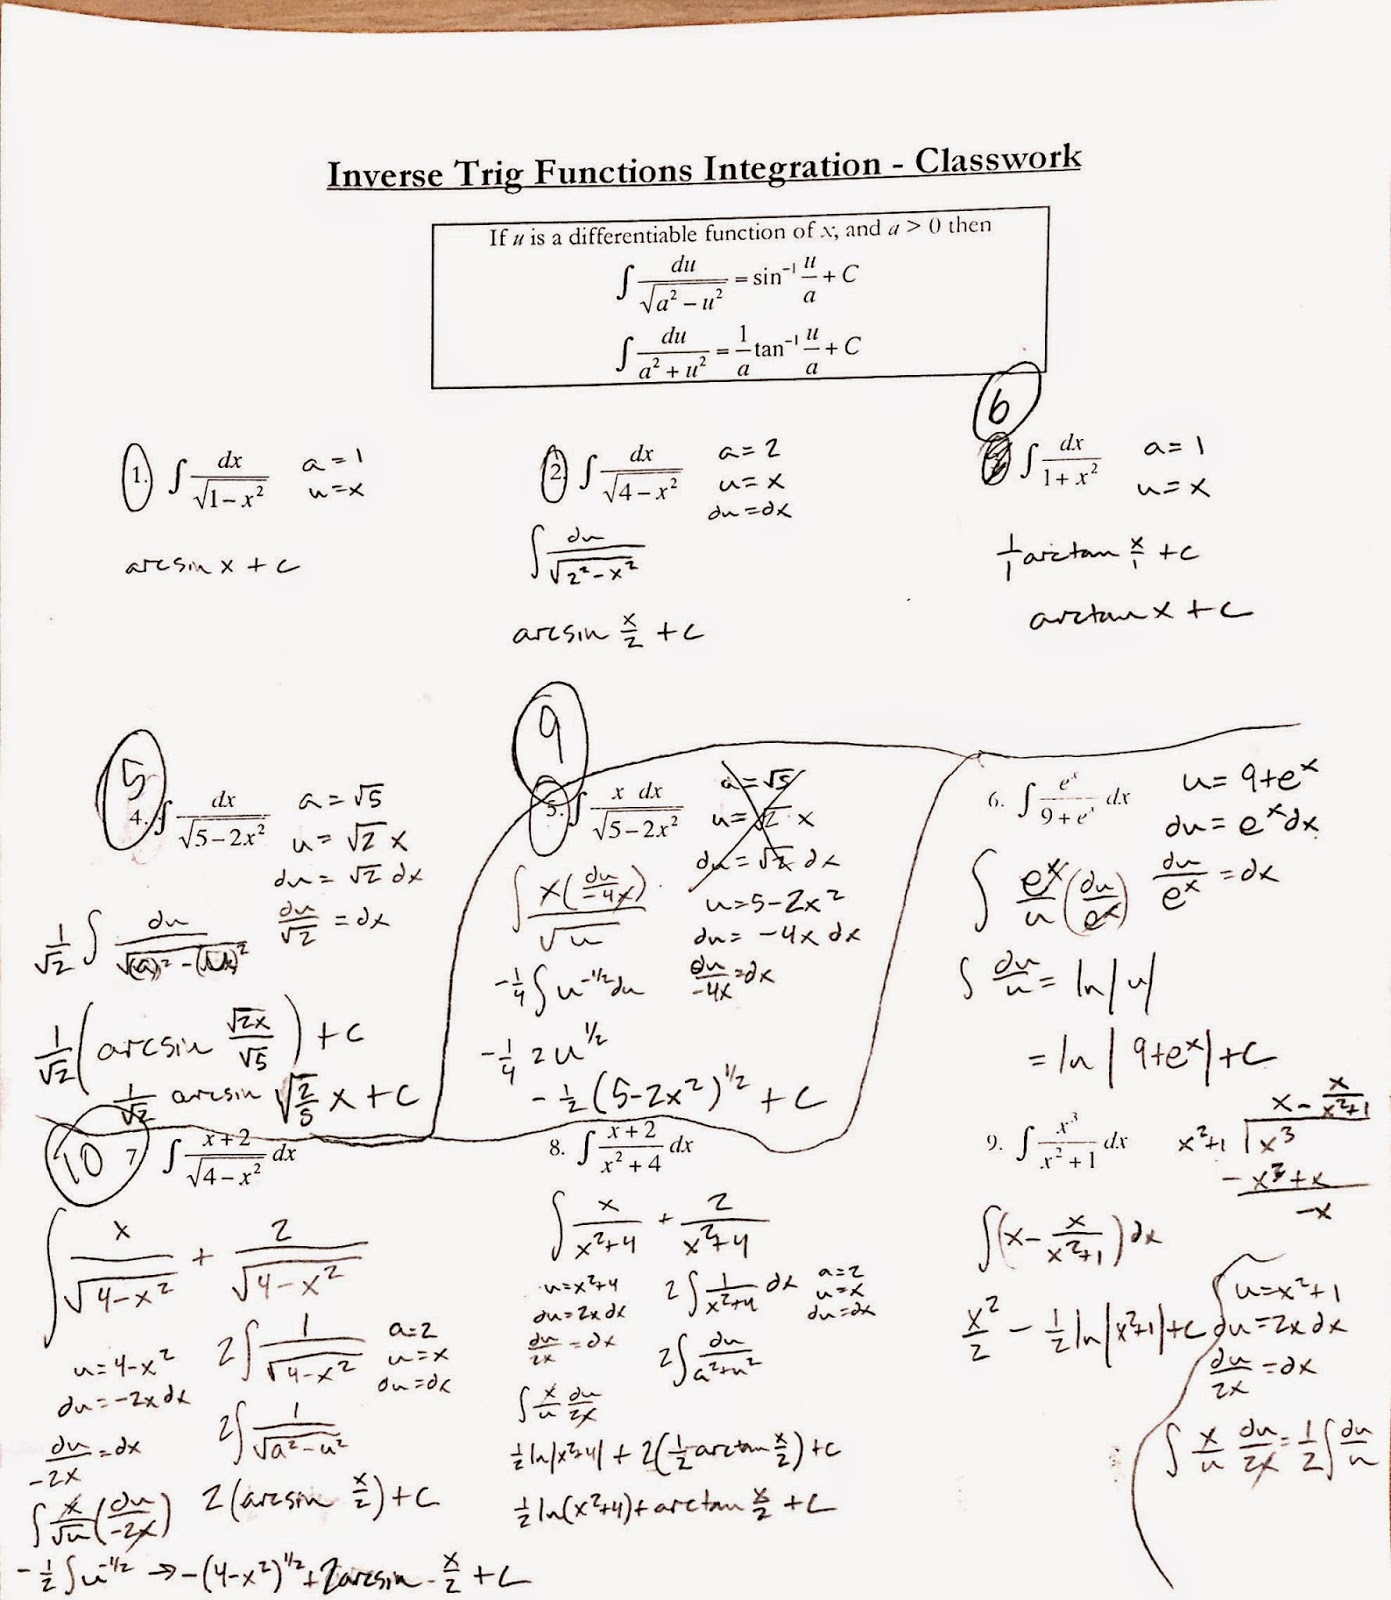 Inverse Trig Functions Integration - Classwork
If u is a differentiable function of x, and a > 0 then
∫ du/√(a² − u²) = sin⁻¹ u/a + C
∫ du/(a² + u²) = 1/a tan⁻¹ u/a + C
1. ∫ dx/√(1 − x²)
a = 1
u = x
arcsin x + c
2. ∫ dx/√(4 − x²)
a = 2
u = x
du = dx
∫ du/√(2² − x²)
arcsin x/2 + c
6
∫ dx/(1 + x²)
a = 1
u = x
1/1 arctan x/1 + c
arctan x + c
5
4. ∫ dx/√(5 − 2x²)
a = √5
u = √2 x
du = √2 dx
du/√2 = dx
1/√2 ∫ du
1/√2 (arcsin √2x/√5) + c
1/√2 arcsin √(2/5) x + c
9
5. ∫ x dx/√(5 − 2x²)
a = √5
u = √2 x
du = √2 dx
u = 5 − 2x²
du = −4x dx
du/−4x = dx
∫ x(du/−4x)/√u
−1/4 ∫ u^(−1/2) du
−1/4 2u^(1/2)
−1/2 (5 − 2x²)^(1/2) + c
6. ∫ eˣ/(9 + eˣ) dx
u = 9 + eˣ
du = eˣ dx
du/eˣ = dx
∫ eˣ/u (du/eˣ)
∫ du/u = ln|u|
= ln|9 + eˣ| + c
10
7 ∫ (x + 2)/√(4 − x²) dx
∫ x/√(4 − x²) + 2/√(4 − x²)
u = 4 − x²
du = −2x dx
du/−2x = dx
∫ x/√u (du/−2x)
2∫ 1/√(4 − x²)
a = 2
u = x
du = dx
2∫ 1/√(a² − u²)
2(arcsin x/2) + c
−1/2 ∫ u^(−1/2) → −(4 − x²)^(1/2) + 2arcsin x/2 + c
8. ∫ (x + 2)/(x² + 4) dx
∫ x/(x² + 4) + 2/(x² + 4)
u = x² + 4
du = 2x dx
du/2x = dx
∫ x/u du/2x
2∫ 1/(x² + 4) dx
a = 2
u = x
du = dx
2∫ du/(a² + u²)
1/2 ln|x² + 4| + 2(1/2 arctan x/2) + c
1/2 ln(x² + 4) + arctan x/2 + c
9. ∫ x³/(x² + 1) dx
x − x/(x² + 1)
x² + 1 √x³
− x³ + x
−x
∫ (x − x/(x² + 1)) dx
x²/2 − 1/2 ln|x² + 1| + c
u = x² + 1
du = 2x dx
du/2x = dx
∫ x/u du/2x = 1/2 ∫ du/u